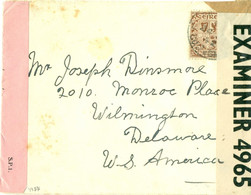 Mr Joseph Dinsmore
2010. Monroe Place
Wilmington
Delaware.
U.S. America
EXAMINER 4965
S.P.I.